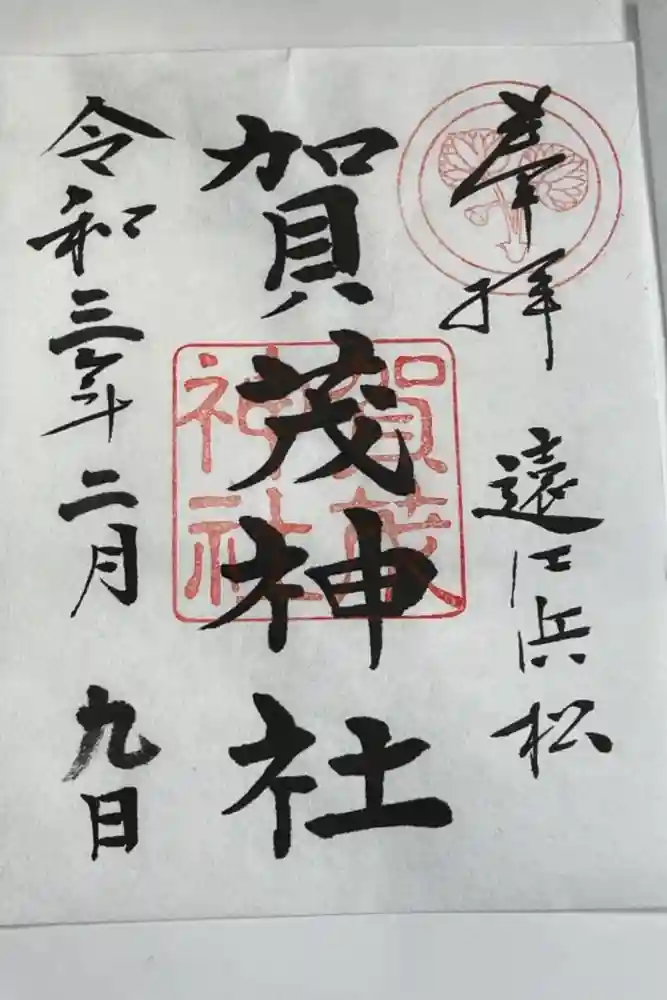 奉拝 遠江浜松
賀茂神社
賀茂
神社
令和三年二月九日